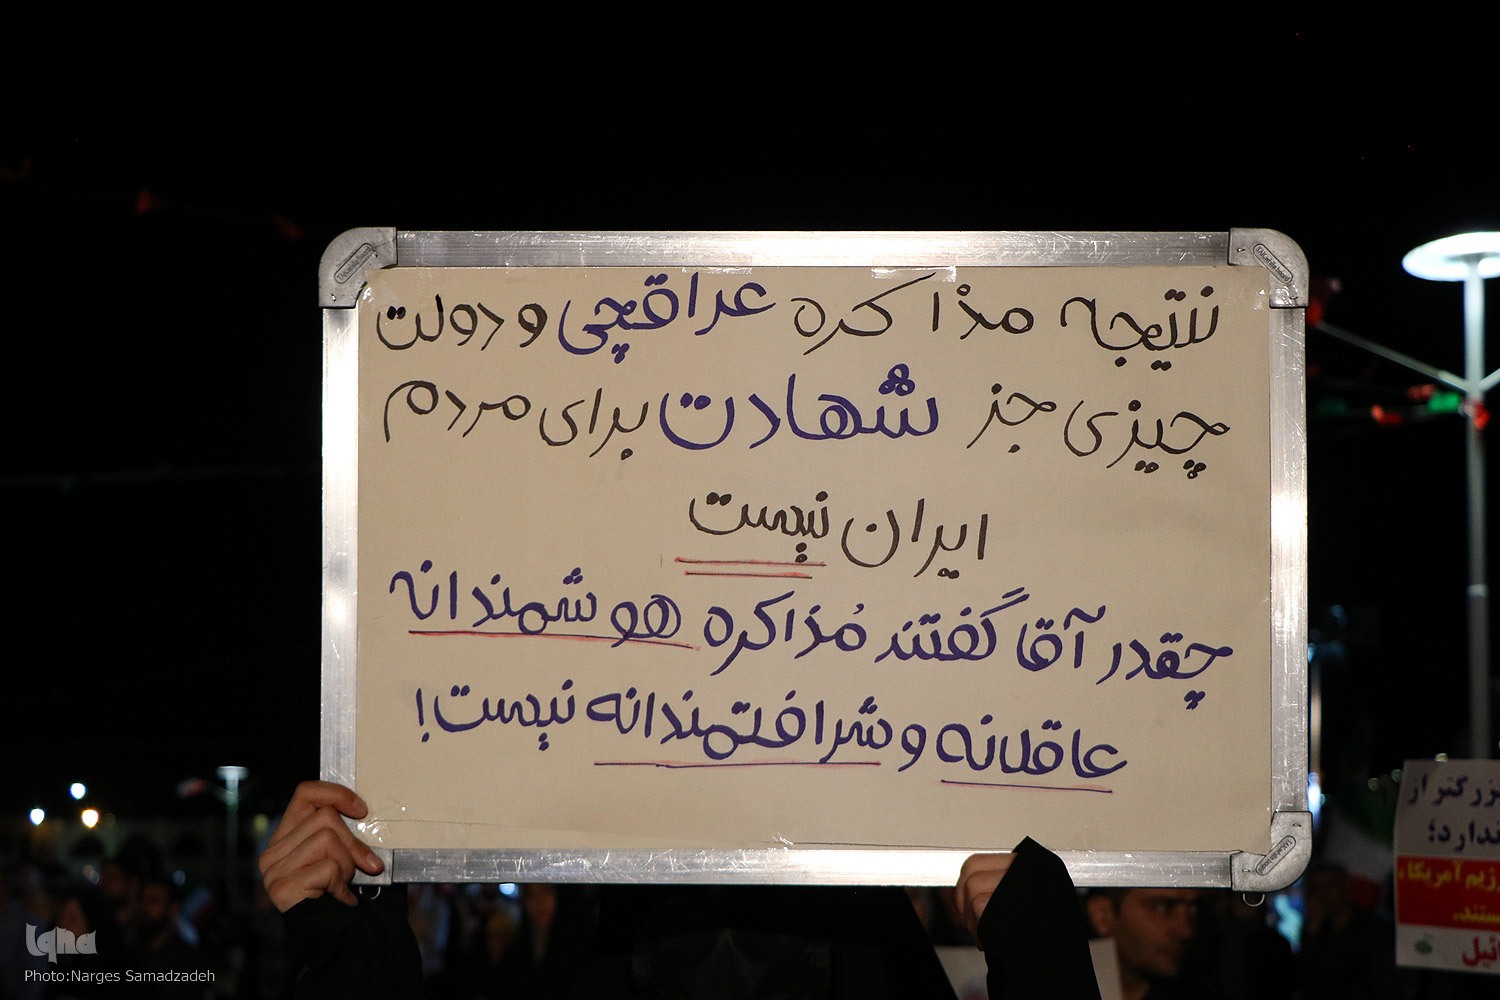 نتیجه مذاکره عراقچی و دولت
چیزی جز شهادت برای مردم
ایران نیست
چقدر آقا گفتند مُذاکره هوشمندانه
عاقلانه و شرافتمندانه نیست!
بزرگتر از
ندارد؛
رژیم آمریکا،
ستند.
ئیل
iqna
Photo:Narges Samadzadeh